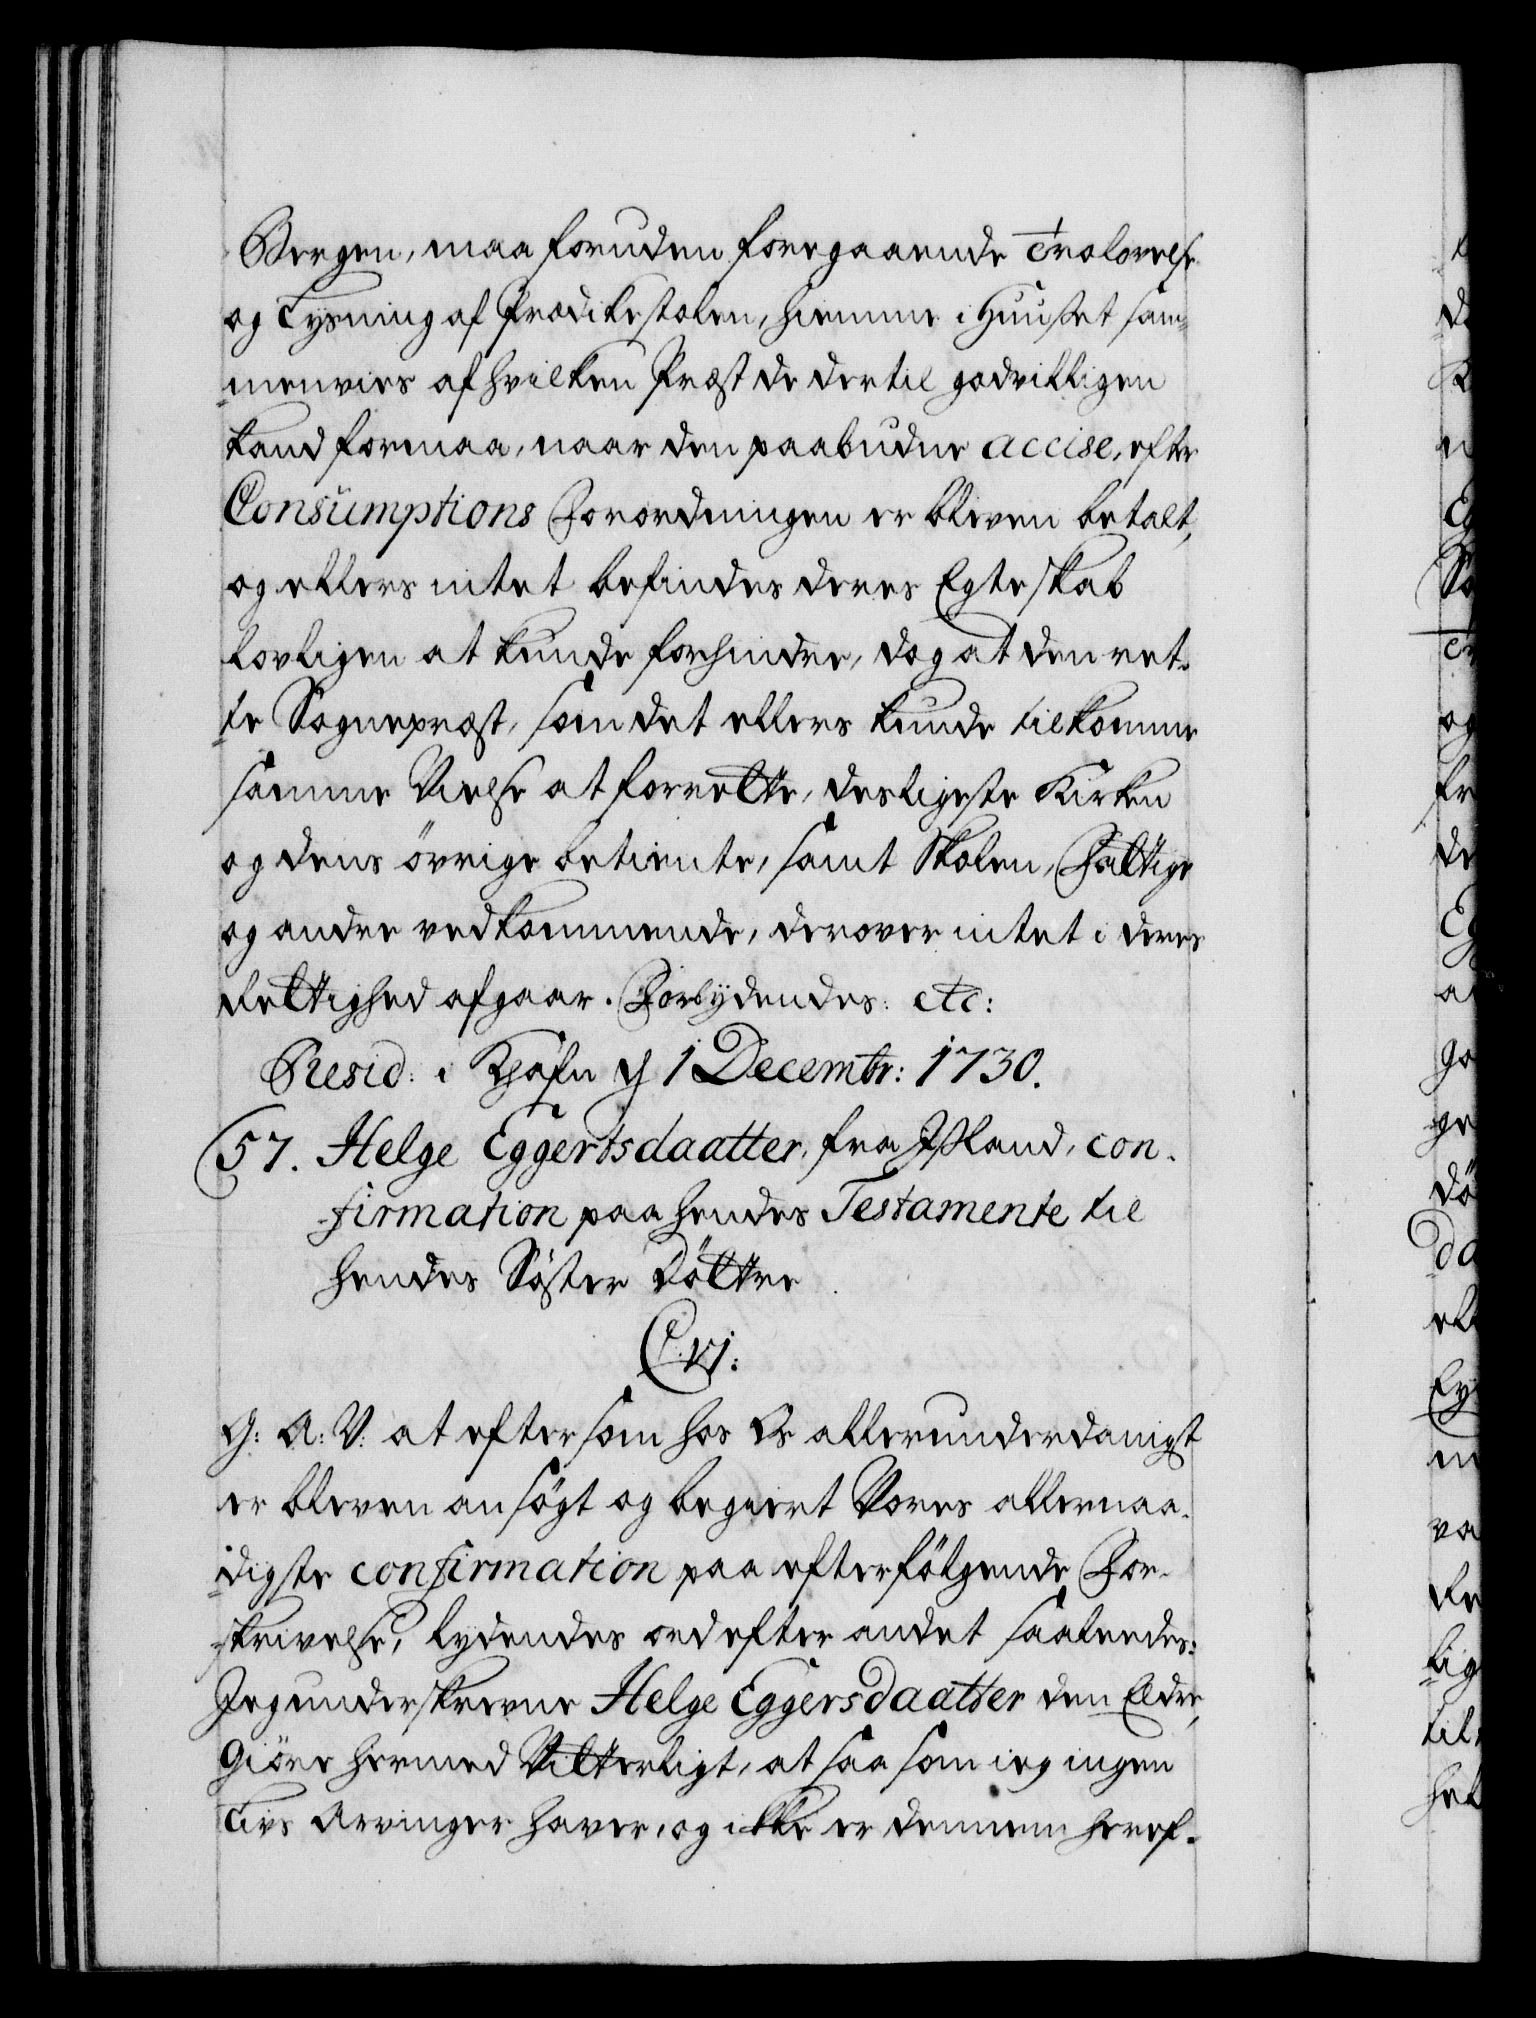 Bergen, maa foruden foregaaende Trolovelse
og Lysning af Prædikestolen, hiemme i Huuset sam¬
menvies af hvilken Præst de dertil godvilligen
kand formaa, naar den paabudne accise, efter
Consumptions Forordningen er bleven betalt,
og ellers intet befindes deres Egteskab
lovligen at kunde forhindre, dog at den ret¬
te Sognepræst, som det ellers kunde tilkomme
samme Vielse at forrette, desligeste Kirken
og dens övrige betiente, samt Skolen, Fattige
og andre vedkommende, derover intet i deres
Rettighed afgaar. Forbydendes: etc:
Resid: i Khafn d 1 Decembr: 1730.
57. Helge Eggertsdaatter, fra Island, con¬
firmation paa hendes Testamente til
hendes Söster Döttre
C. vj:
G: A: V: at eftersom hos Os allerunderdanigst
er bleven ansögt og begiert Vores allernaa¬
digste confirmation paa efterfölgende For¬
skrivelse, lydendes ord efter andet saaledes:
Jeg underskrevne Helge Eggersdaatter den Eldre,
Giöre hermed Vitterligt, at saasom ieg ingen
Livs Arvinger haver, og ikke er dennem heref¬